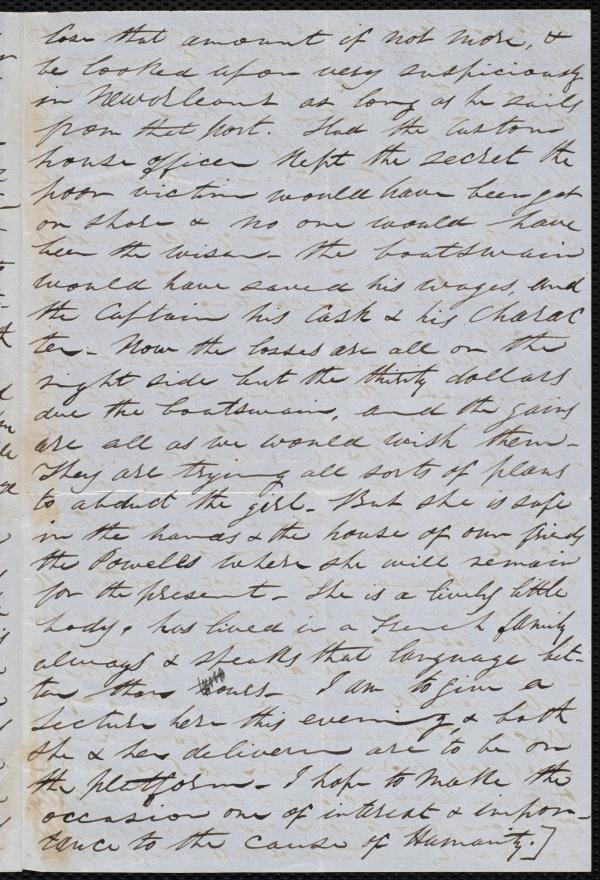 lose that amount if not more, &
be looked upon very suspiciously
in New Orleans as long as he sails
from that port. Had the Custom
house officer kept the secret the
poor victim would have been got
on shore & no one would have
been the wiser - the boatswain
would have saved his wages, and
the Captain his Cash & his Charac
ter - Now the losses are all on the
right side but the thirty dollars
due the boatswain, and the gains
are all as we would wish them -
They are trying all sorts of plans
to abduct the girl - But she is safe
in the hands & the house of our friends
the Powells where she will remain
for the present - She is a lively little
body, has lived in a French family
always & speaks that language bet-
ter than ours - I am to give a
lecture here this evening, & both
she & her deliverer are to be on
the platform - I hope to make the
occasion one of interest & impor-
tance to the cause of Humanity.]